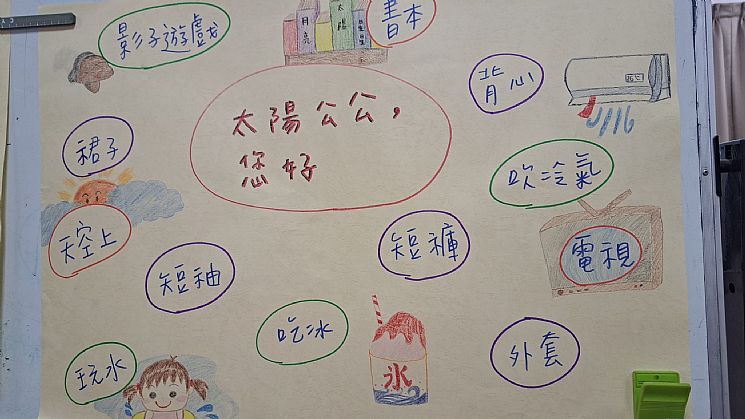 影子遊戲
月亮
太陽
書本
背心
太陽公公,
您好
裙子
吹冷氣
天空上
短袖
短褲
電視
吃冰
外套
玩水
冰